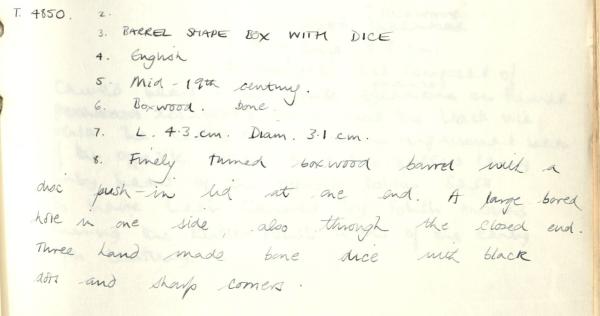 T. 4850. 2.
3. BARREL SHAPE BOX WITH DICE
4. English
5. Mid-19th century.
6. Boxwood. bone.
7. L. 4.3.cm. Diam. 3.1 cm.
8. Finely turned boxwood barrel with a
disc push-in lid at one end. A large bored
hole in one side also through the closed end.
Three hand made bone dice with black
dots and sharp corners.